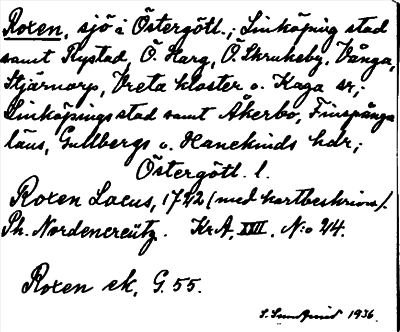 Roxen, sjö i Östergötl.; Linköping stad
samt Rystad, Ö. Harg, Ö. Skrukeby, Vånga,
Stjärnorp, Vreta kloster o. Kaga sr;
Linköpings stad samt Åkerbo, Finspånga
läns, Gullbergs o. Hanekinds hdr;
Östergötl. l.
Roxen Lacus, 1742 (med kartbeskrivn).
Ph. Nordencreütz. KrA, XXIII, N:o 24.
Roxen ek, G. 55.
1936.